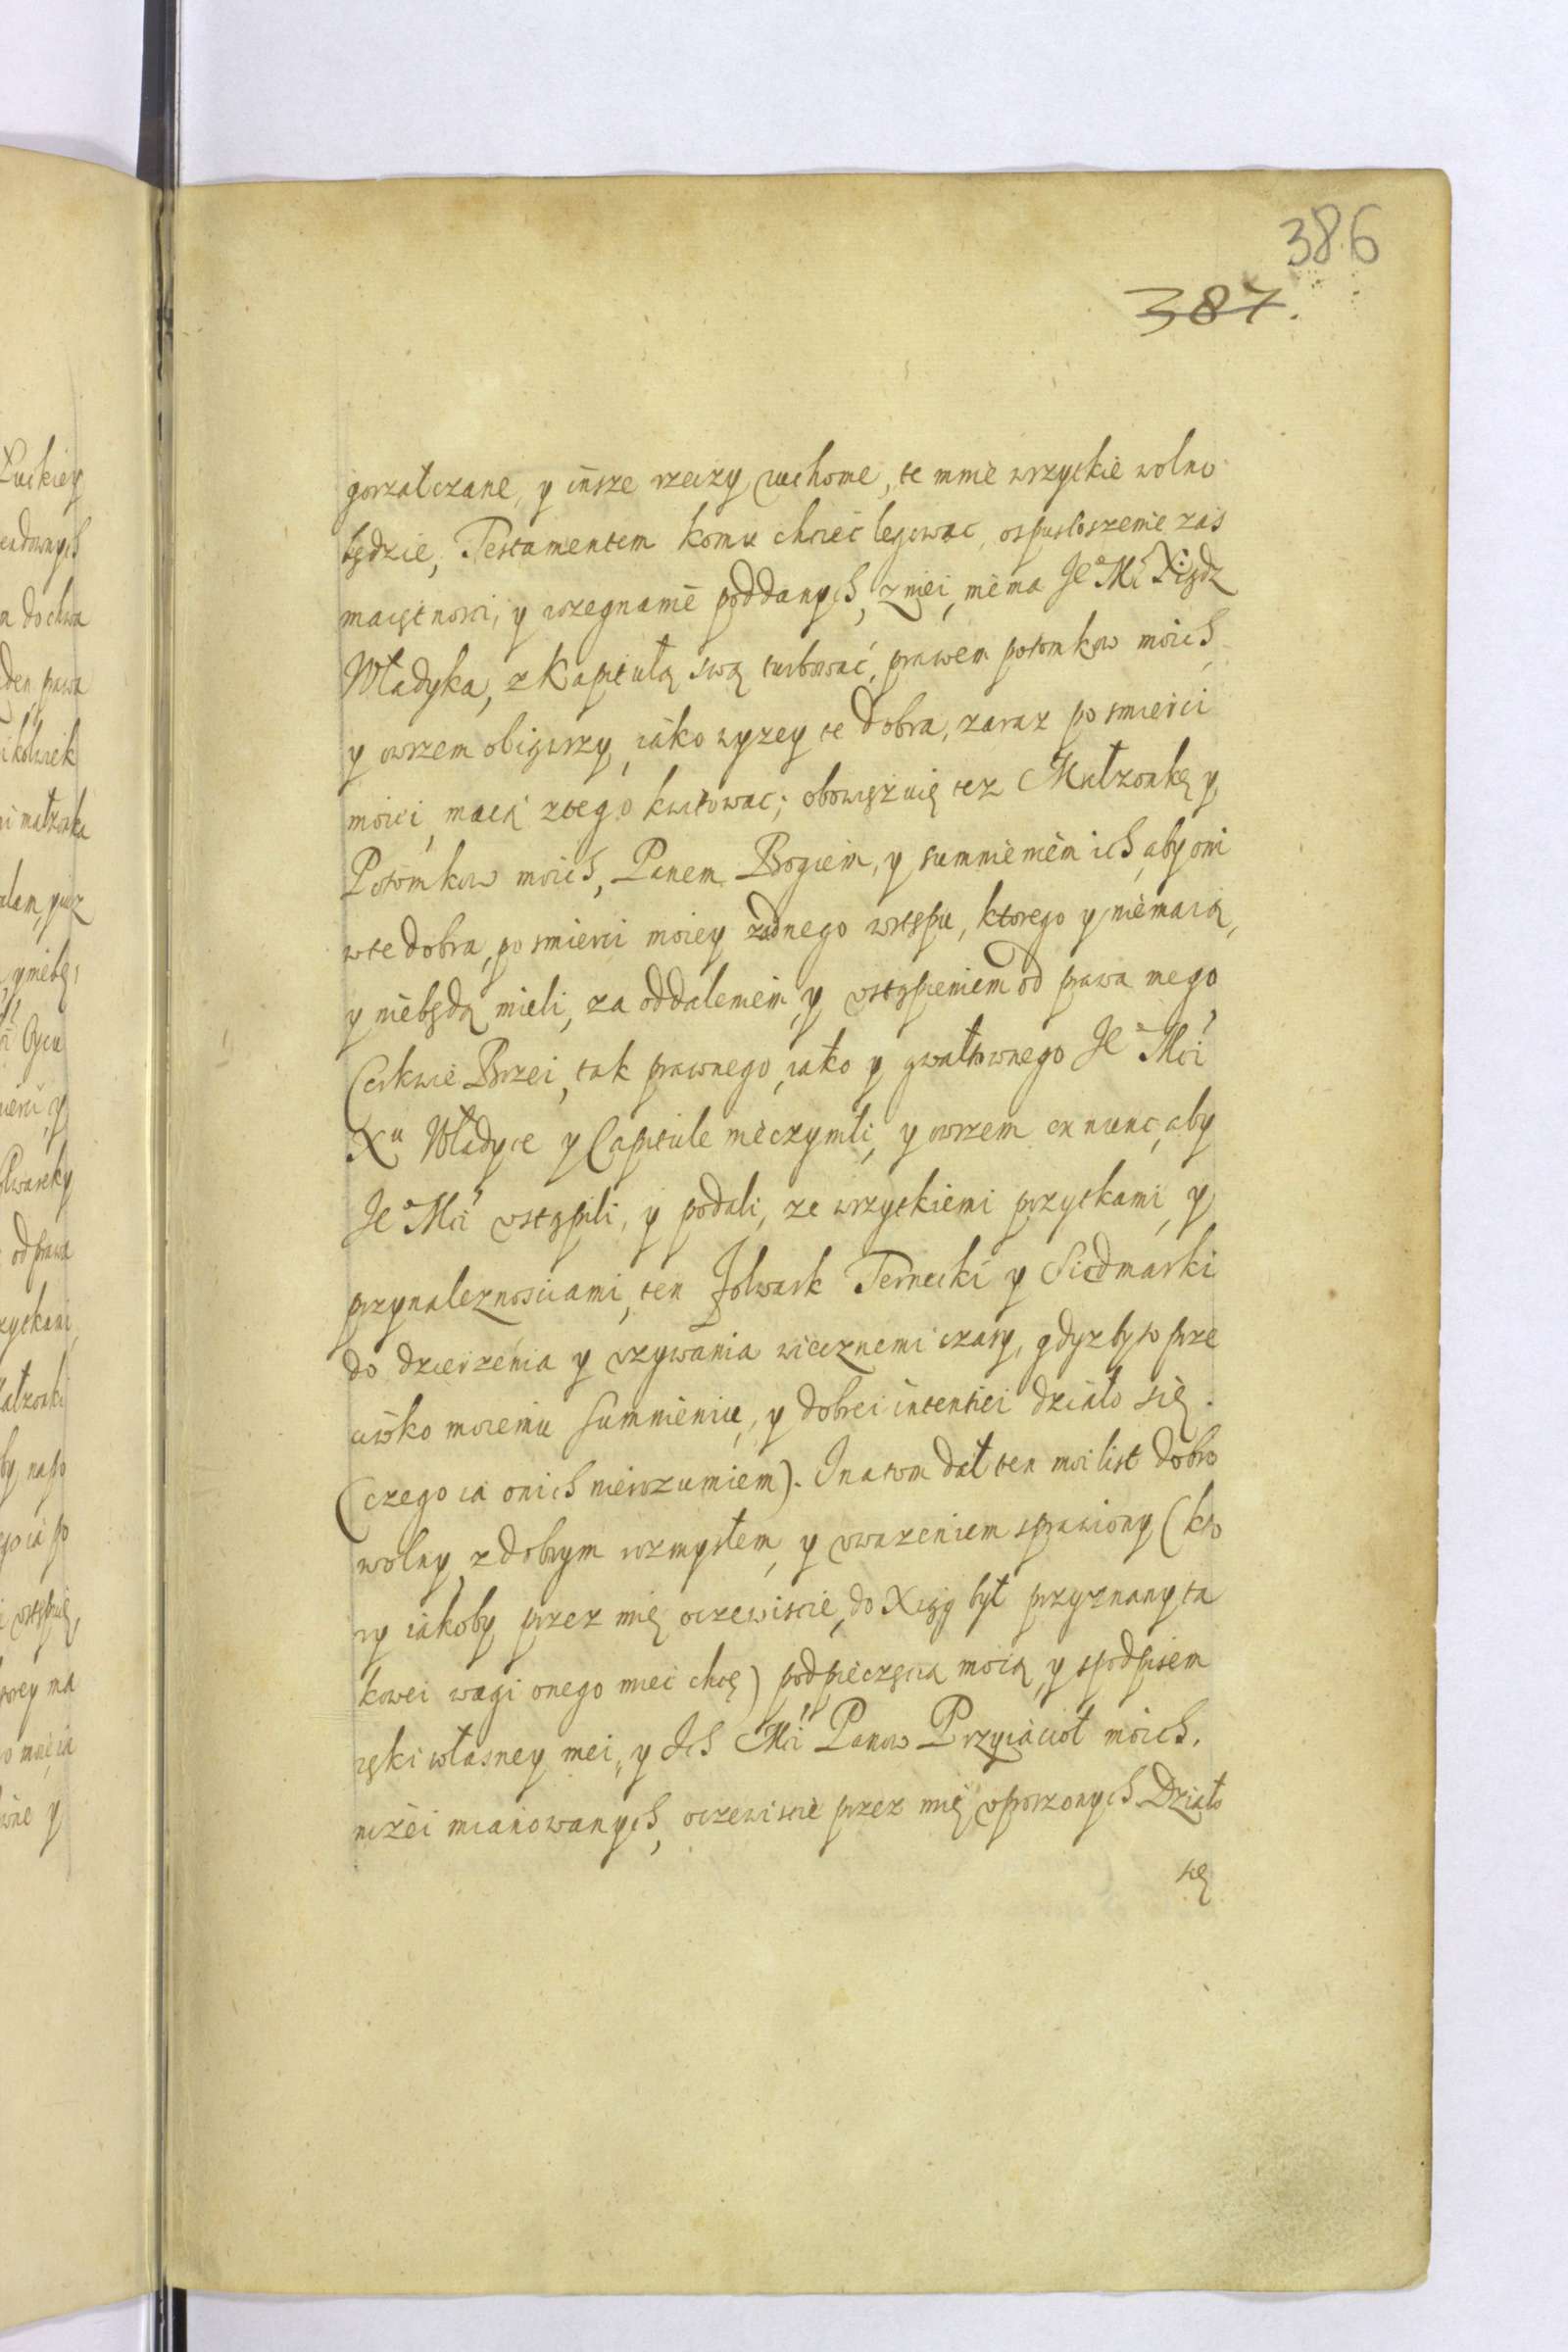 386
387.
gorzałczane, y insze rzeczy ruchome, te mnie wszytkie wolno
będzie, Testamentem komu chcieć legować, ospustoszenie zaś
maiętnosci, y rozegnanie poddanych, zniei, niema Je° Mć Xiądz
Władyka, z Kapitułą swą turbować, prawem potomkow moich
y owszem obiązszy, iako wyzey te dobra, zaraz po smierci
moiei, maią ztego kwitować; obowięzuię tez Małzonkę y
Potomkow moich, Panem Bogiem, y sumnieniem ich, aby oni
wte dobra, po smierci moiey zadnego wstępu, ktorego y niemaią,
y niebędą mieli, za oddaleniem, y vstąpieniem od prawa mego
Cerkwie Brzei, tak prawnego, iako y gwałtownego Je° Mći
Xu Władyce y Capitule nieczynili, y owszem ex nunc, aby
Je° Mći vstąpili, y podali, ze wszytkiemi pozytkami, y
przynaleznosciami, ten folwark Ternecki y Siedmarki
do dzierzenia y vzywania wiecznemi czasy, gdyzby to prze
ciwko moiemu sumnieniu, y dobrei intentiei działo się.
(czego ia onich nierozumiem). Inatom dał ten moi list dobro
wolny, z dobrym rozmysłem, y vwazeniem sprawiony (kto
ry iakoby przez mię oczewiscie, do Xiąg był przyznany ta
kowei wagi onego miec chcę) podpieczęcią moią, y spodpisem
ręki własney mei, y Ich Mći Panow Przyiacioł moich,
nizei mianowanych, oczewiscie przez mię vproszonych Działo
się